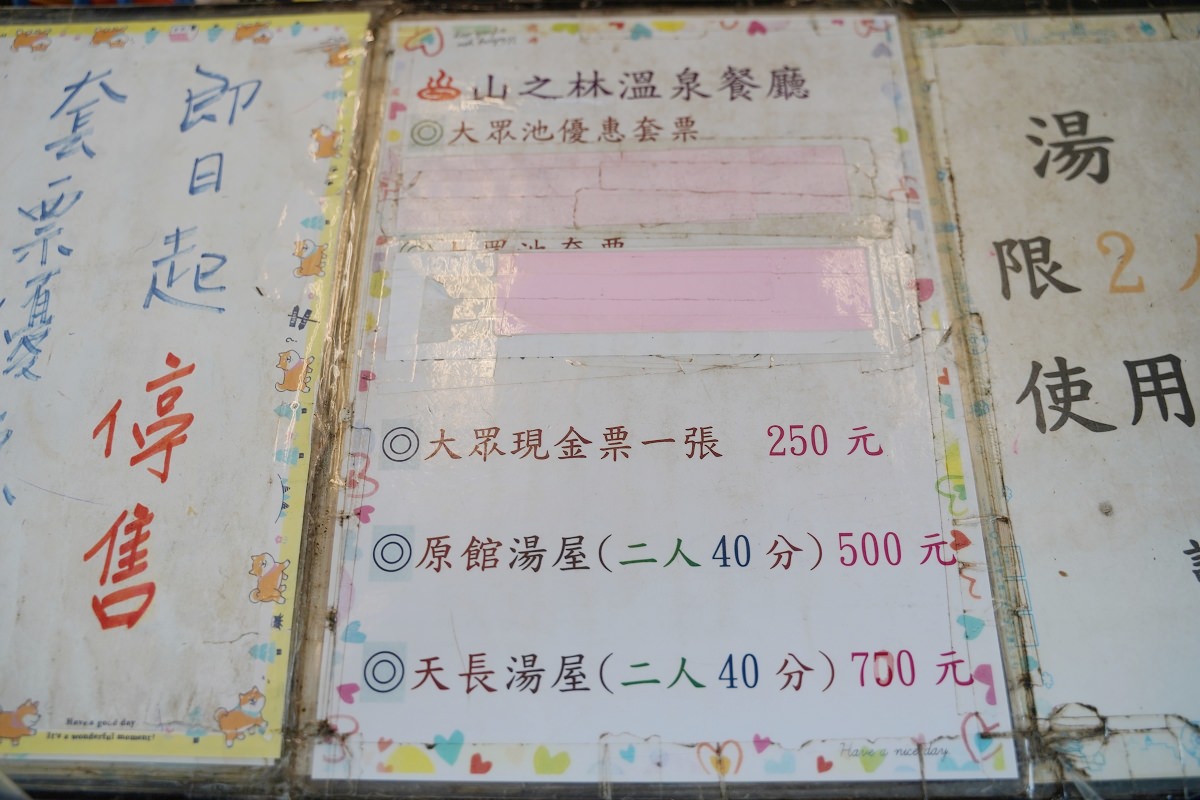 即日起停售
套票優
Have a good day
It's a wonderful moment!
山之林溫泉餐廳
◎大眾池優惠套票
大眾池套票
◎大眾現金票一張 250 元
◎原館湯屋(二人40分)500 元
◎天長湯屋(二人40分)700 元
Have a nice day
湯
限2人
使用